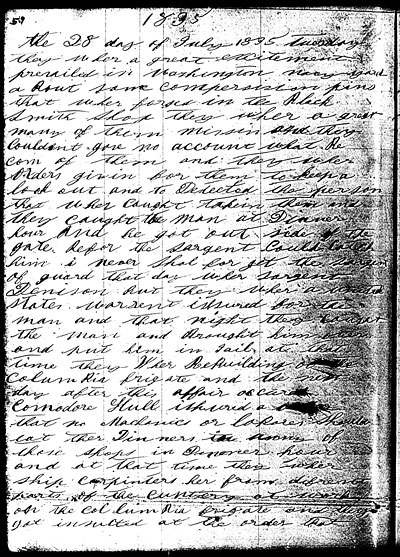 59
1835
the 28 day of July 1835 tuesday
they wher a great excitement
prevailed in Washington navy yard
a Bout some compersision pins
that wher forged in the Black
smith shop they wher a great
many of them missin and they
Couldent give no account what Be
com of them and they wher
orders givin for them to keep a
look out and to Detected the person
that wher Caught takein them and
they Caught the man at Dinner
hour and he got out side of the
gate befor the sargent Could catch
him i never shal for get the
of guard that day wher sargent
Denison but they wher a united
states warrent ishured for the
man and that night they
the man and Brought him
and put him in Jail at that
time they Wher ReBuilding
ColumBia frigate and the next
day after this affair occured
Comodore Hull ishured a
that no Mackanics or labores should
eat ther Dinners in
those shops in Dinner hour
and at that time they wher
ship Carpinters her from diferent
parts of the Cuntery at work
on the ColumBia frigate and they
got insulted at the order that